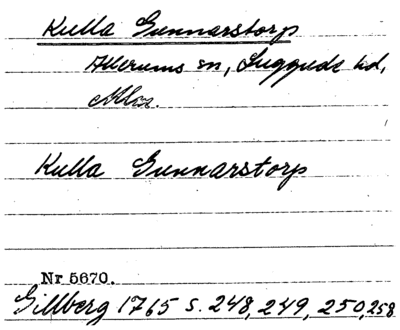 Kulla Gunnarstorp
Allerums sn, Luggude hd,
Mlhs.
Kulla Gunnarstorp
Nr 5670.
Gillberg 1765 s. 248, 249, 250, 258